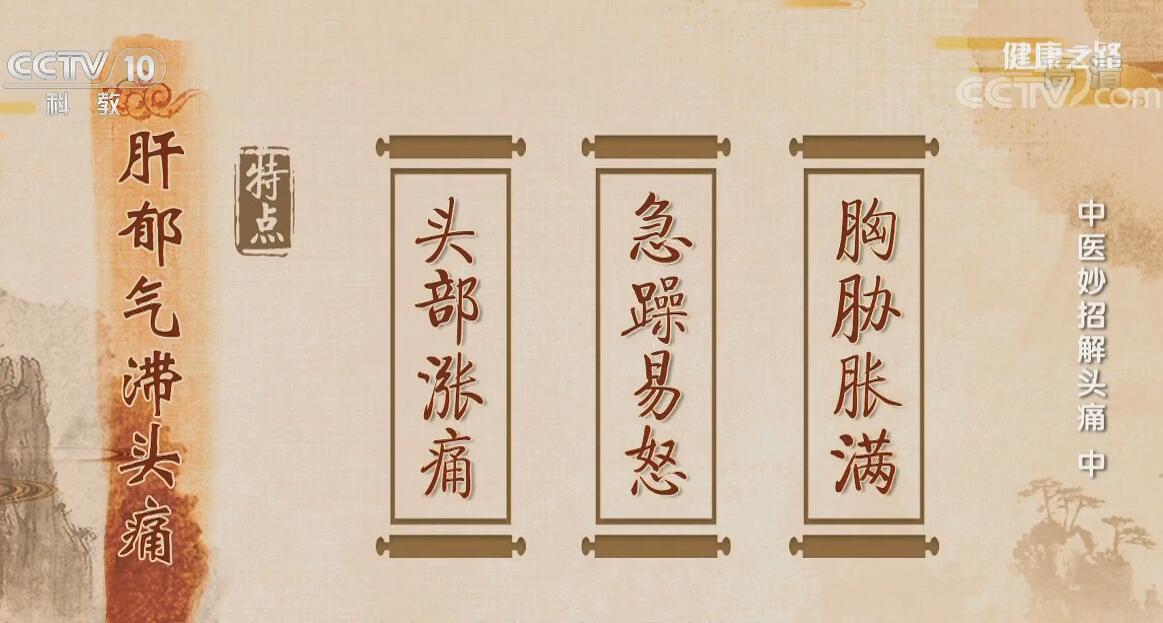 CCTV 10
科 教
健康之路
CCTV.com
肝郁气滞头痛
特点
头部涨痛
急躁易怒
胸胁胀满
中医妙招解头痛 中